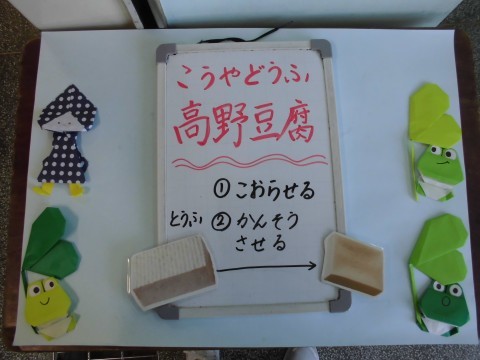 こうやどうふ
高野豆腐
①こおらせる
とうふ ②かんそう
させる